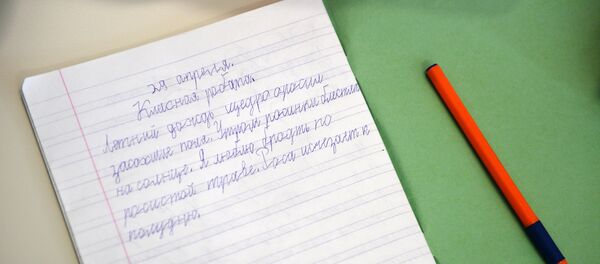 29 апреля.
Класная работа.
Летний дождь щедро оросил
засохшие поля. Утром росинки блестят
на солнце. Я люблю бродить по
росистой траве. Роса исчезает к
полудню.